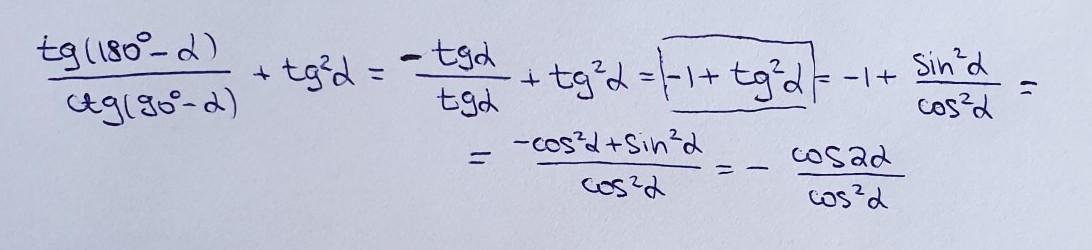 tg(180°-α)/ctg(90°-α) + tg²α = -tgα/tgα + tg²α = -1 + tg²α = -1 + sin²α/cos²α =
= -cos²α + sin²α/cos²α = - cos2α/cos²α